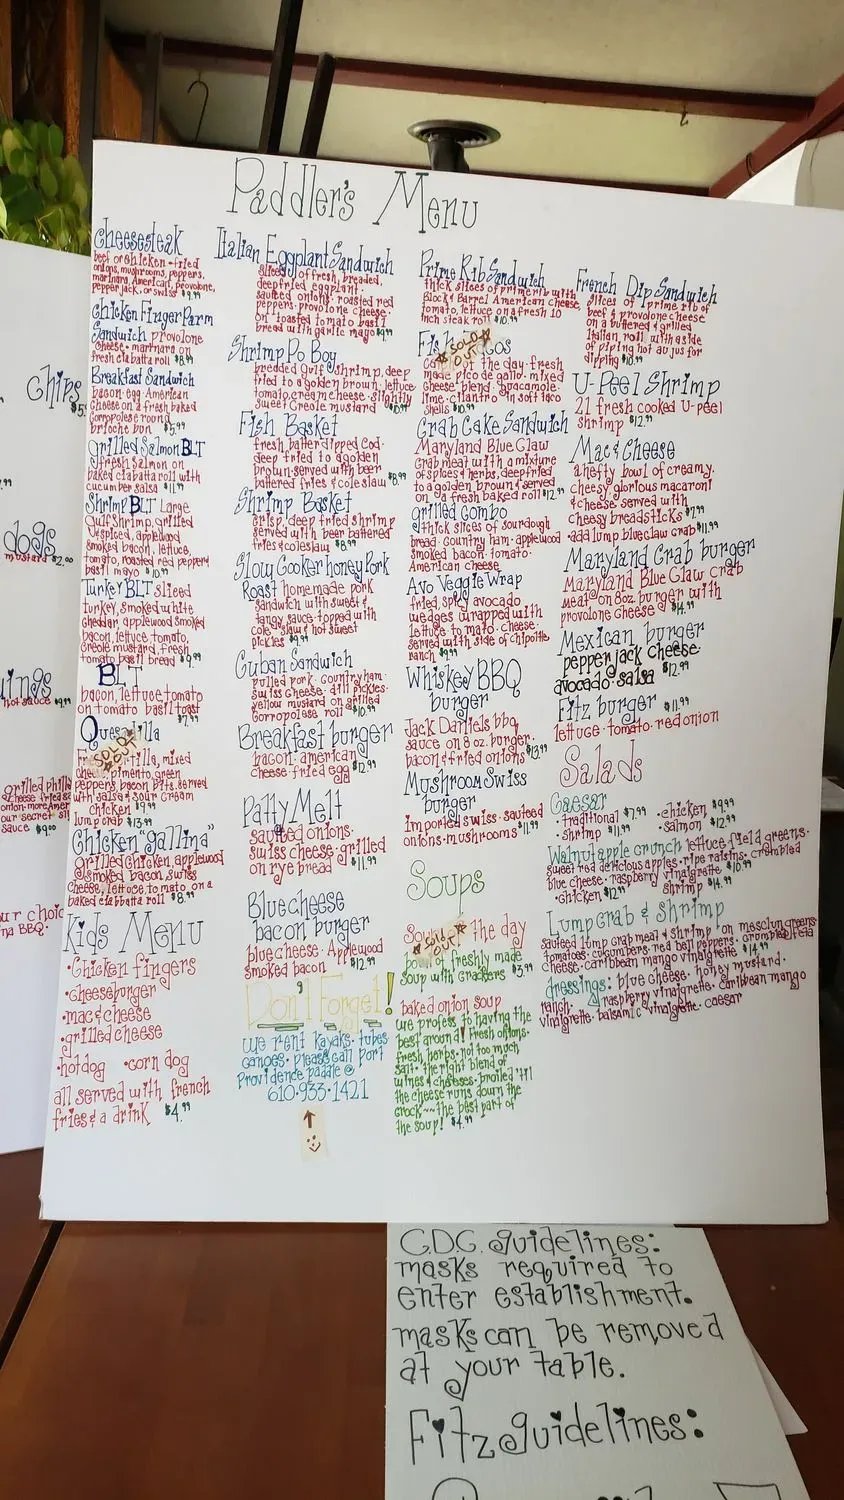 Paddler's Menu
cheesesteak
beef or chicken - fried
onions, mushrooms, peppers,
marinara, American, provolone,
pepper jack, or swiss $9.99
chicken Finger Parm
Sandwich provolone
cheese · marinara on
fresh ciabatta roll $8.99
Breakfast Sandwich
bacon · egg · American
cheese on a fresh baked
Corropolese round
brioche bun $5.99
grilled Salmon BLT
fresh salmon on
baked ciabatta roll with
cucumber salsa $11.99
Shrimp BLT Large
gulf shrimp, grilled
spiced, applewood
smoked bacon, lettuce,
tomato, roasted red pepper
basil mayo $10.99
Turkey BLT sliced
turkey, smoked white
cheddar, applewood smoked
bacon, lettuce tomato,
creole mustard, fresh
tomato basil bread $9.99
BLT
bacon, lettuce, tomato
on tomato basil toast
$7.99
Quesadilla
SOLD OUT
tilla, mixed
pimento, green
peppers, bacon bits. served
with salsa & sour cream
chicken $9.99
lump crab $13.99
Chicken "gallina"
grilled chicken, applewood
smoked bacon, swiss
cheese, lettuce, tomato, on a
baked ciabatta roll $8.99
Kids Menu
·Chicken fingers
·cheeseburger
·mac & cheese
·grilled cheese
·hotdog ·corn dog
all served with french
fries & a drink $4.99
Italian Eggplant Sandwich
slices of fresh, breaded,
deep fried eggplant ·
sauteed onions · roasted red
peppers · provolone cheese ·
on toasted tomato basil
bread with garlic mayo $9.99
Shrimp Po Boy
breded gulf shrimp, deep
fried to a golden brown · lettuce ·
tomato, cream cheese · slightly
sweet Creole mustard $10.99
Fish Basket
fresh batter dipped Cod ·
deep fried to a golden
brown · served with beer
battered fries & coleslaw $8.99
Shrimp Basket
crisp, deep fried shrimp
served with beer battered
fries & coleslaw $8.99
Slow Cooker honey Pork
Roast homemade pork
sandwich with sweet &
tangy sauce · topped with
cole slaw & hot sweet
pickles $9.99
Cuban Sandwich
pulled pork · country ham ·
swiss cheese · dill pickles ·
yellow mustard on grilled
Corropolese roll $10.99
Breakfast burger
bacon · american
cheese · fried egg $12.99
Patty Melt
sauteed onions ·
swiss cheese · grilled
on rye bread $11.99
Blue cheese
bacon burger
blue cheese · Applewood
smoked bacon $12.99
Don't Forget!
we rent kayaks · tubes
canoes · please call port
Providence paddle @
610·933·1421
Prime Rib Sandwich
thick slices of prime rib with
Block & Barrel American cheese,
tomato, lettuce on a fresh 10
inch steak roll $10.99
SOLD OUT
of the day · fresh
made pico de gallo · mixed
cheese blend · guacamole
lime · cilantro in soft taco
shells $10.99
Crab Cake Sandwich
Maryland Blue Claw
Crab meat with a mixture
of spices & herbs, deep fried
to a golden brown & served
on a fresh baked roll $12.99
grilled Combo
thick slices of sourdough
bread · country ham · applewood
smoked bacon · tomato ·
American cheese
Avo Veggie Wrap
fried, spicy avocado
wedges wrapped with
lettuce · tomato · cheese ·
served with side of chipotle
ranch $9.99
Whiskey BBQ
burger
Jack Daniels bbq
sauce on 8 oz. burger ·
bacon & fried onions $13.99
Mushroom Swiss
burger
imported swiss · sauteed
onions · mushrooms $11.99
Soups
the day
SOLD OUT
bowl of freshly made
soup with crackers $3.99
baked onion soup
we profess to having the
best around! fresh onions ·
fresh herbs · not too much
salt · the right blend of
wines & cheeses · broiled 'til
the cheese runs down the
crock ~~ the best part of
the soup! $4.99
French Dip Sandwich
slices of prime rib of
beef & provolone cheese
on a buttered & grilled
Italian roll, with a side
of piping hot au jus for
dipping $10.99
U-Peel Shrimp
21 fresh cooked U-peel
shrimp $12.99
Mac & Cheese
a hefty bowl of creamy,
cheesy glorious macaroni
& cheese served with
cheesy breadsticks $7.99
·add lump blue claw crab $11.99
Maryland Crab burger
Maryland Blue Claw Crab
meat on 8oz. burger with
provolone cheese $14.99
Mexican burger
pepper jack cheese ·
avocado · salsa $12.99
Fitz burger $11.99
lettuce · tomato · red onion
Salads
Caesar
·traditional $7.99 ·chicken $9.99
·shrimp $11.99 ·salmon $12.99
Walnut apple crunch lettuce field greens ·
sweet red delicious apples · ripe raisins · crumbled
blue cheese · raspberry vinaigrette $10.99
·chicken $12.99 shrimp $14.99
Lump crab & shrimp
sauteed lump crab meat & shrimp · on mesclun greens ·
tomatoes · cucumbers · red bell peppers · crumbled feta
cheese · caribbean mango vinaigrette $14.99
dressings: blue cheese · honey mustard ·
ranch · raspberry vinaigrette · caribbean mango
vinaigrette · balsamic vinaigrette · caesar
chips
dogs
mustard $2.00
hot sauce $9.99
grilled philly
sauce $9.00
C.D.C. guidelines:
masks required to
enter establishment.
masks can be removed
at your table.
Fitz guidelines: